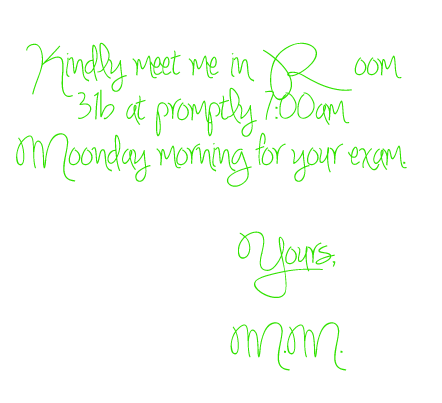 Kindly meet me in Room
31b at promptly 7:00am
Moonday morning for your exam.
Yours,
M.M.